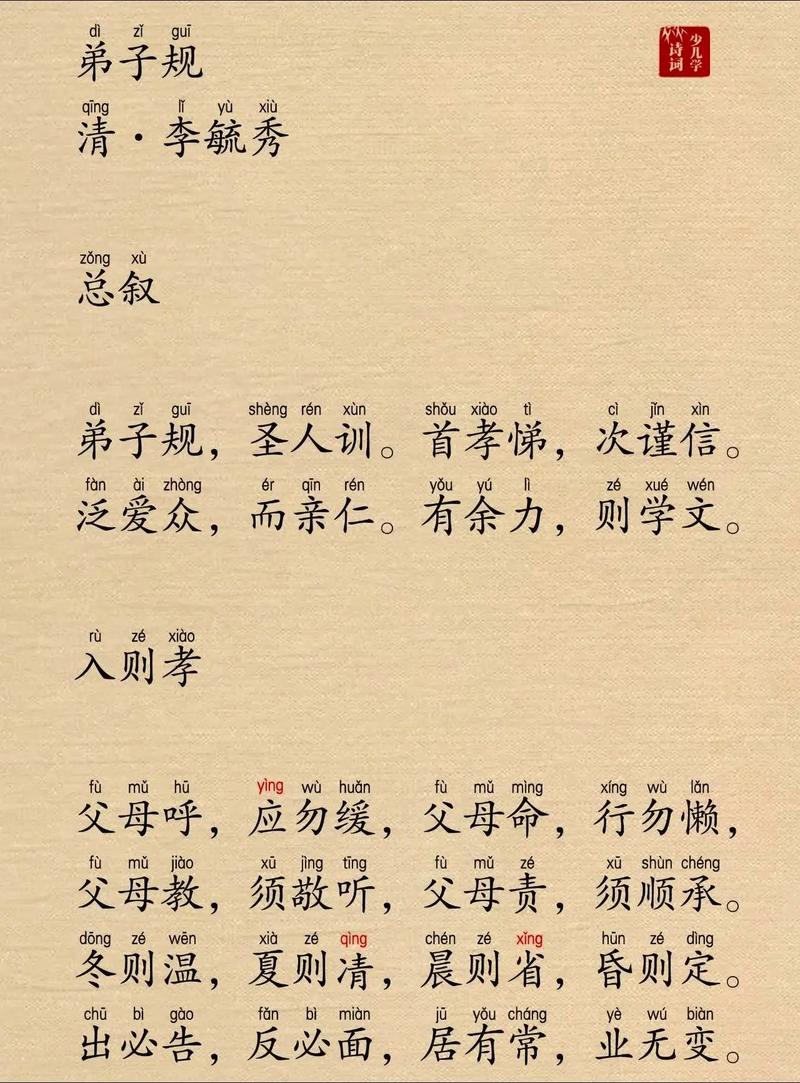 dì zǐ guī
弟子规
qīng lǐ yù xiù
清·李毓秀
少儿学
诗词
zǒng xù
总叙
dì zǐ guī shèng rén xùn shǒu xiào tì cì jǐn xìn
弟子规，圣人训。首孝悌，次谨信。
fàn ài zhòng ér qīn rén yǒu yú lì zé xué wén
泛爱众，而亲仁。有余力，则学文。
rù zé xiào
入则孝
fù mǔ hū yìng wù huǎn fù mǔ mìng xíng wù lǎn
父母呼，应勿缓，父母命，行勿懒，
fù mǔ jiào xū jìng tīng fù mǔ zé xū shùn chéng
父母教，须敬听，父母责，须顺承。
dōng zé wēn xià zé qìng chén zé xǐng hūn zé dìng
冬则温，夏则凊，晨则省，昏则定。
chū bì gào fǎn bì miàn jū yǒu cháng yè wú biàn
出必告，反必面，居有常，业无变。